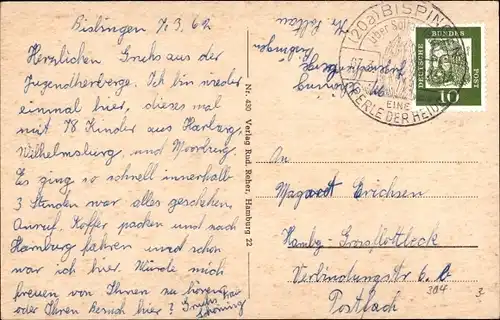 Bislingen 7.3.62
Herzlichen Gruhs aus der
Jugendherberge. Ich bin wieder
einmal hier, dieses mal
mit 78 Kinder aus Harburg,
Wilhelmsburg, und Moorburg.
Es ging so schnell innerhalb
3 Stunden war alles geschehen,
Anruf, Koffer packen und nach
Hamburg fahren und schon
war ich hier. Würde mich
freuen von Ihnen zu hören
oder Ihren Besuch hier? Gruhs Frau
Nr. 430 Verlag Rud. Reher, Hamburg 22
Kr. Soltau
(20a) BISPINGEN
über Soltau
EINE
PERLE DER HEIDE
DEUTSCHE BUNDESPOST
10
An
Erichsen
Hambg-Grossflottbeck
Verbindungsstr. 6
Postfach
304 3.